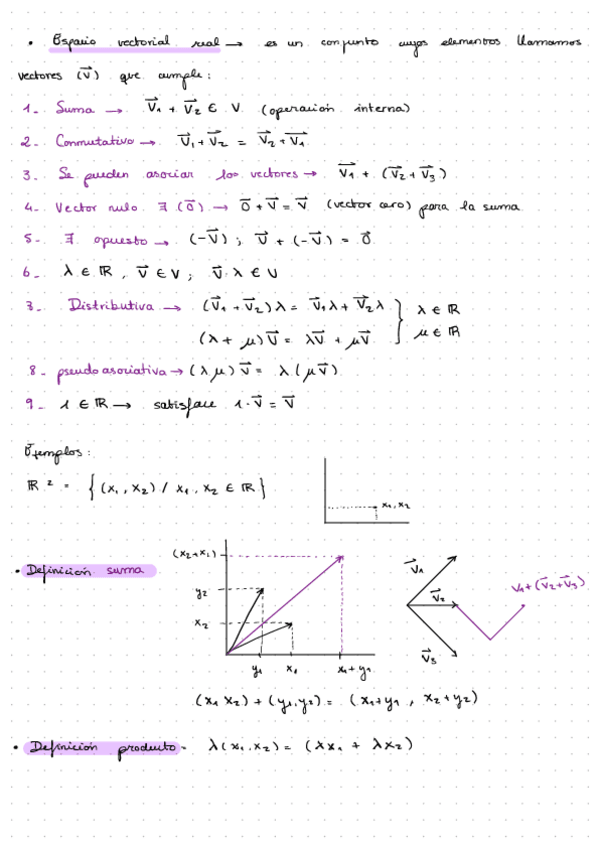 • Espacio vectorial real → es un conjunto cuyos elementos llamamos
vectores (v⃗) que cumple:
1- Suma → V⃗₁ + V⃗₂ ∈ V (operación interna)
2- Conmutativo → V⃗₁ + V⃗₂ = V⃗₂ + V⃗₁
3. Se pueden asociar los vectores → V⃗₁ + (V⃗₂ + V⃗₃)
4- Vector nulo ∃ (0⃗) → 0⃗ + V⃗ = V⃗ (vector cero) para la suma
5- ∃ opuesto → (-V⃗) ; V⃗ + (-V⃗) = 0⃗
6- λ ∈ ℝ, V⃗ ∈ V ; V⃗·λ ∈ V
7- Distributiva → (V⃗₁ + V⃗₂) λ = V⃗₁λ + V⃗₂λ } λ ∈ ℝ
(λ + μ) V⃗ = λV⃗ + μV⃗ } μ ∈ ℝ
8- pseudoasociativa → (λμ) V⃗ = λ (μV⃗)
9- 1 ∈ ℝ → satisface 1·V⃗ = V⃗
Ejemplos:
ℝ² = {(x₁, x₂) / x₁, x₂ ∈ ℝ}
x₁, x₂
• Definición suma
(x₂+x₁)
y₂
x₂
y₁ x₁ x₁+y₁
V⃗₁
V⃗₂
V⃗₃
V₁+(V⃗₂+V⃗₃)
(x₁ x₂) + (y₁, y₂) = (x₁+y₁ , x₂+y₂)
• Definición producto- λ(x₁, x₂) = (λx₁ + λx₂)